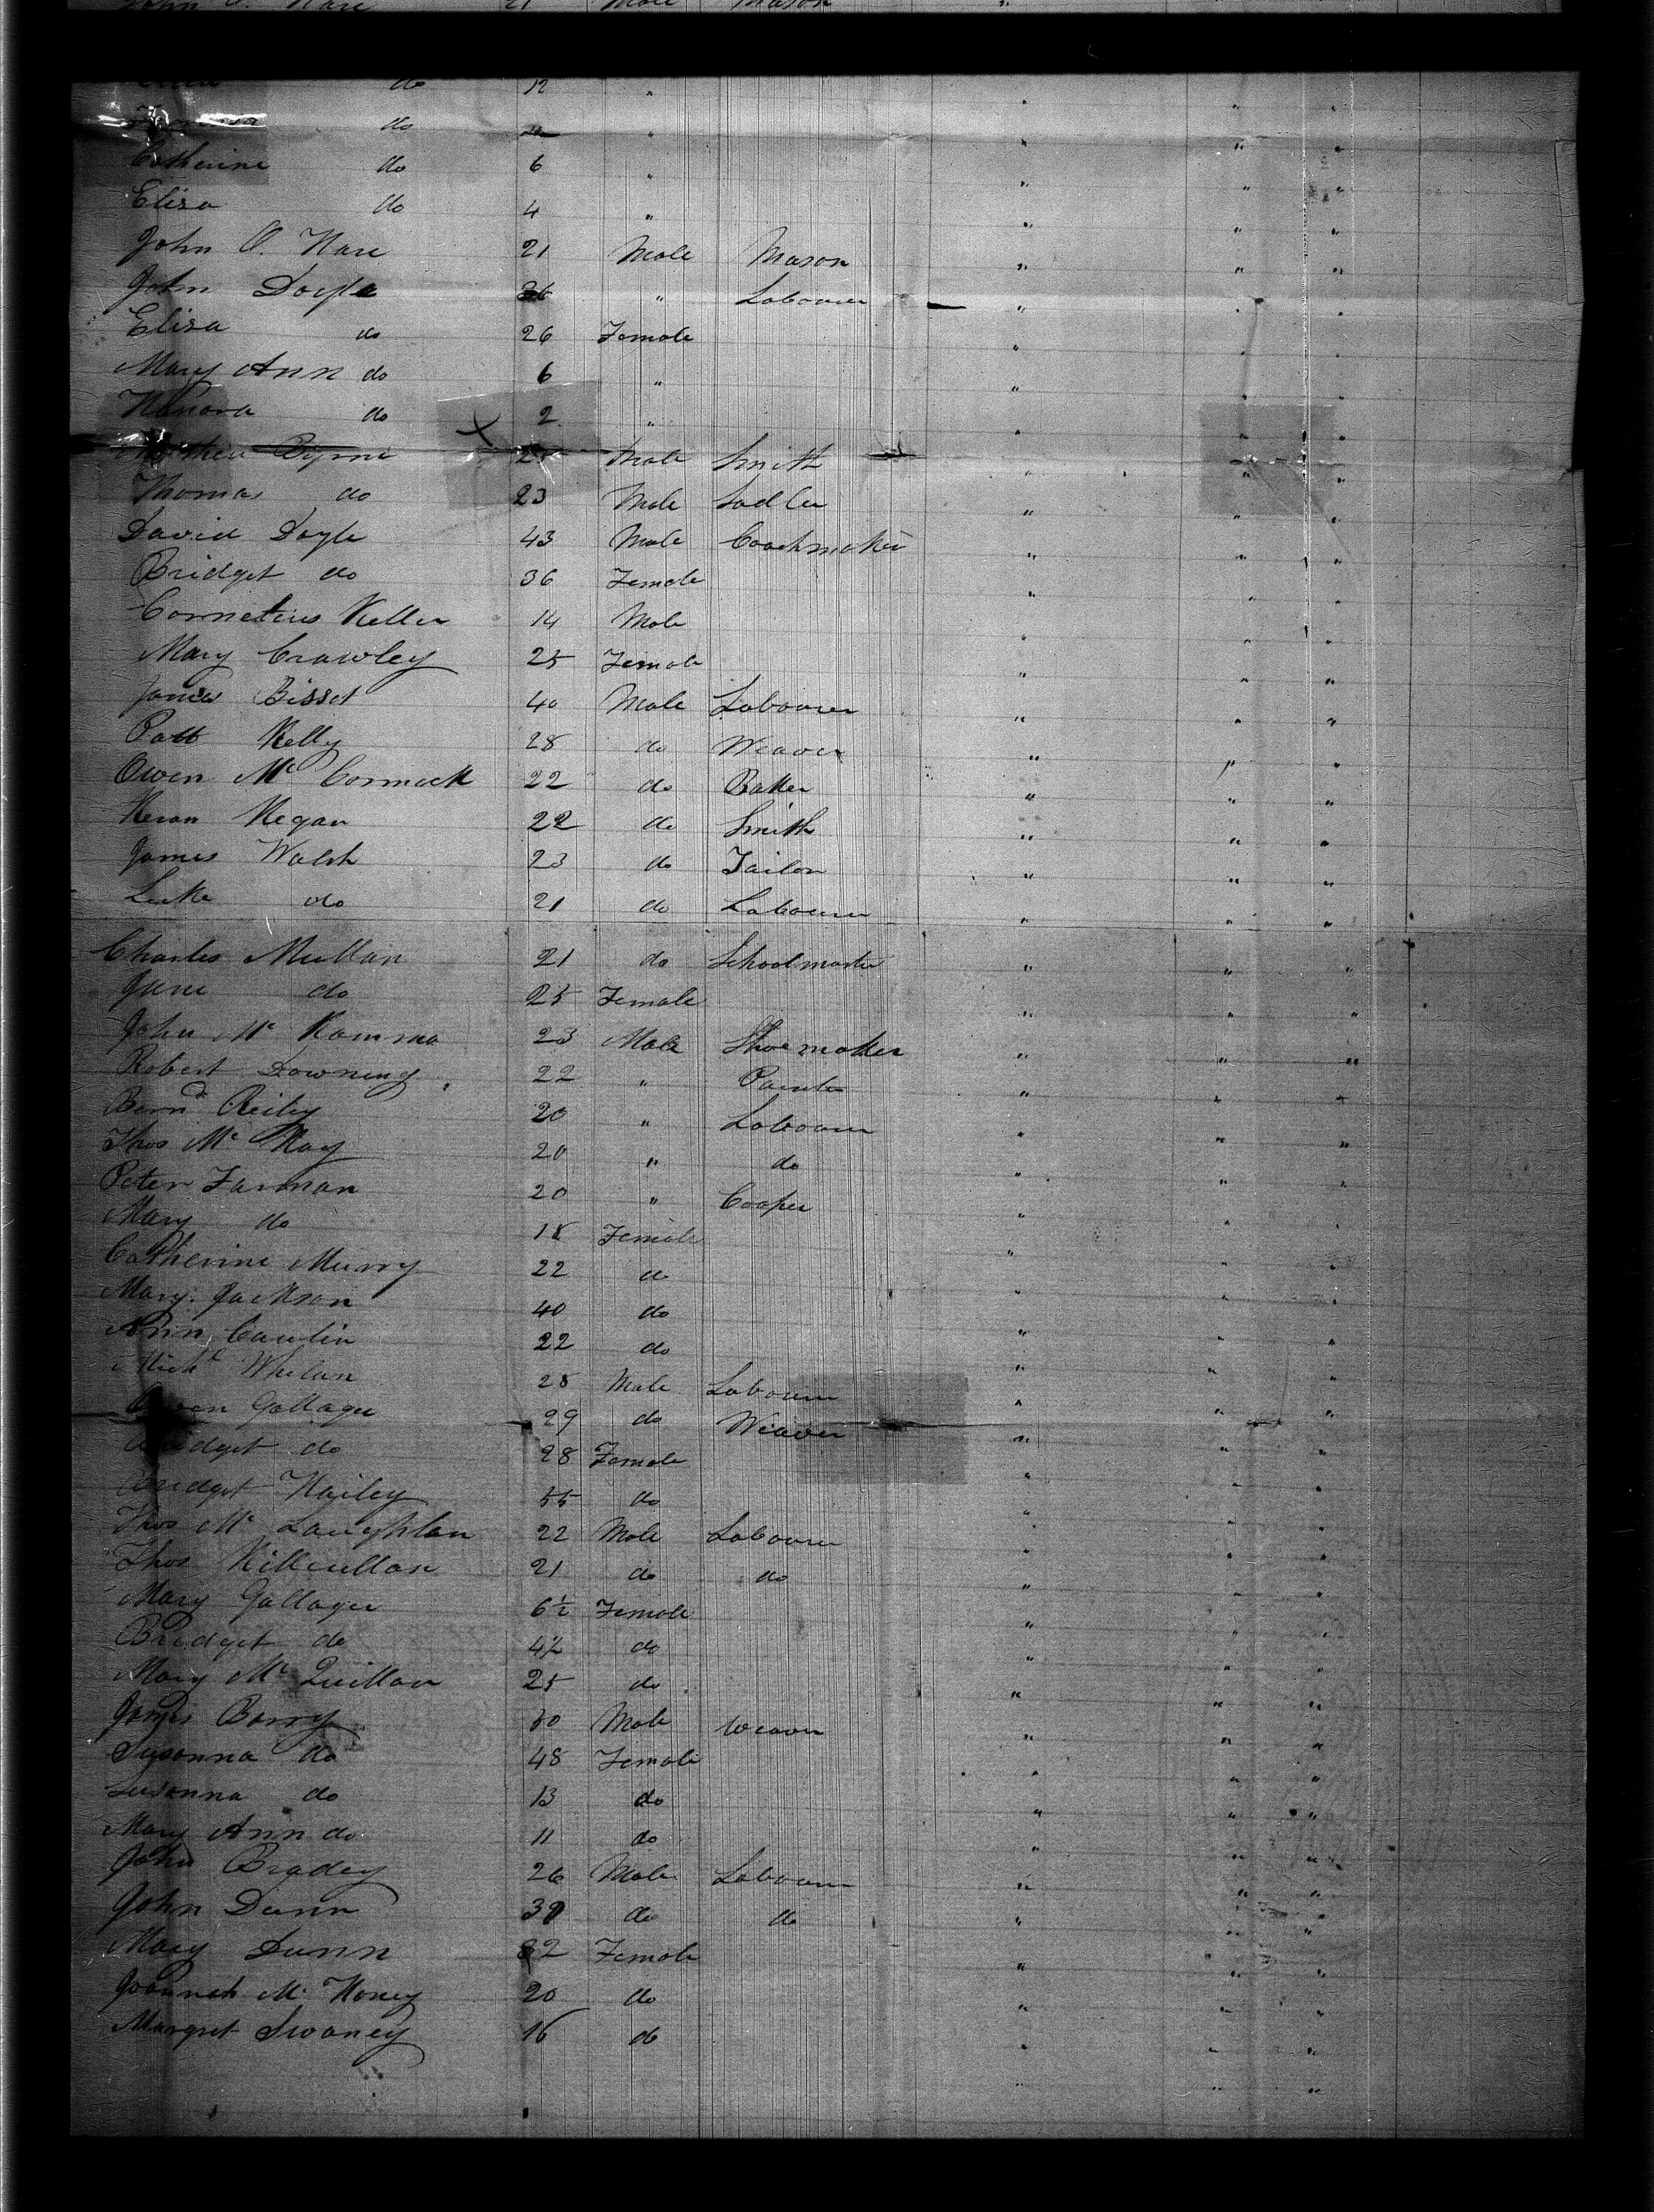 John O. Hare 21 Male Mason "
do 12 " " " "
do " " " "
Catherine do 6 " " " "
Elisa do 4 " " " "
John O. Hare 21 Male Mason " " "
John Doyle 36 " Labourer " " "
Elisa do 26 Female " " "
Mary Ann do 6 " " " "
Hanora do 2 " " " "
Mathew Byrne Male Smith " " "
Thomas do 23 Male Sadler " " "
David Doyle 43 Male Coachmaker " " "
Bridget do 36 Female " " "
Cornelius Keller 14 Male " " "
Mary Crawley 25 Female " " "
James Bisset 40 Male Labourer " " "
Patt Kelly 28 do Weaver " " "
Owen Mc Cormack 22 do Baker " " "
Keran Kegan 22 do Smith " " "
James Walsh 23 do Tailor " " "
Luke do 21 do Labourer " " "
Charles Mullan 21 do Schoolmaster " " "
Jane do 25 Female " " "
John Mc Kamma 23 Male Shoemaker " " "
Robert Downing 22 " Painter " " "
Bernd Reiley 20 " Labourer " " "
Thos Mc Kay 20 " do " " "
Peter Farman 20 " Cooper " " "
Mary do 18 Female " " "
Catherine Murry 22 do " " "
Mary Jackson 40 do " " "
Ann Caulin 22 do " " "
Michl Whelan 28 Male Labourer " " "
Owen Gallager 29 do Weaver " " "
Bridget do 28 Female " " "
Bridget Hailey 55 do " " "
Thos Mc Laughlan 22 Male Labourer " " "
Thos Killcullan 21 do do " " "
Mary Gallager 6½ Female " " "
Bridget do do " " "
Mary Mc Quillan 25 do " " "
James Barry 50 Male Weaver " " "
Susanna do 48 Female " " "
Susanna do 13 do " " "
Mary Ann do 11 do " " "
John Bradey 26 Male Labourer " " "
John Dunn do do " " "
Mary Dunn 32 Female " " "
Joannah Mc Honey 20 do " " "
Margret Swaney 16 do " " "